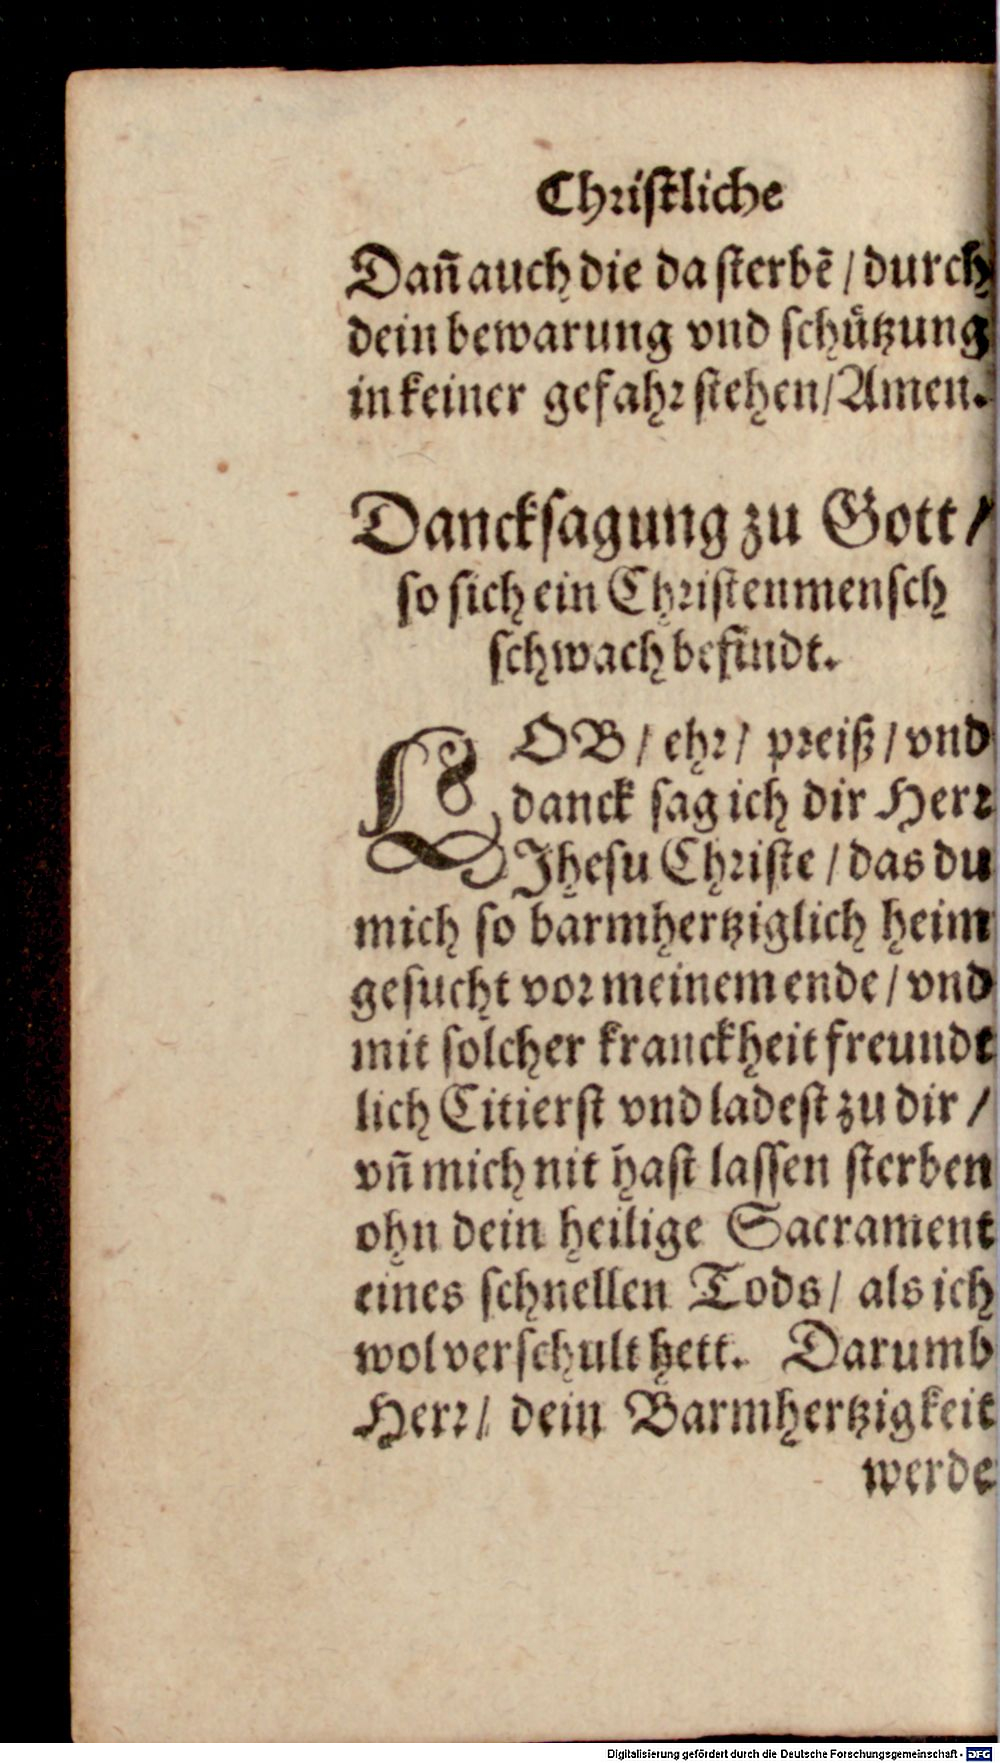 Christliche
Dañ auch die da sterbẽ / durch
dein bewarung vnd schützung
in keiner gefahr stehen / Amen.
Dancksagung zu Gott /
so sich ein Christenmensch
schwach befindt.
LOB / ehr / preiß / vnd
danck sag ich dir Herr
Jhesu Christe / das du
mich so barmhertziglich heim
gesucht vor meinem ende / vnd
mit solcher kranckheit freundt
lich Citierst vnd ladest zu dir /
vñ mich nit hast lassen sterben
ohn dein heilige Sacrament
eines schnellen Tods / als ich
wol verschult hett. Darumb
Herr / dein Barmhertzigkeit
werde
Digitalisierung gefördert durch die Deutsche Forschungsgemeinschaft - DFG